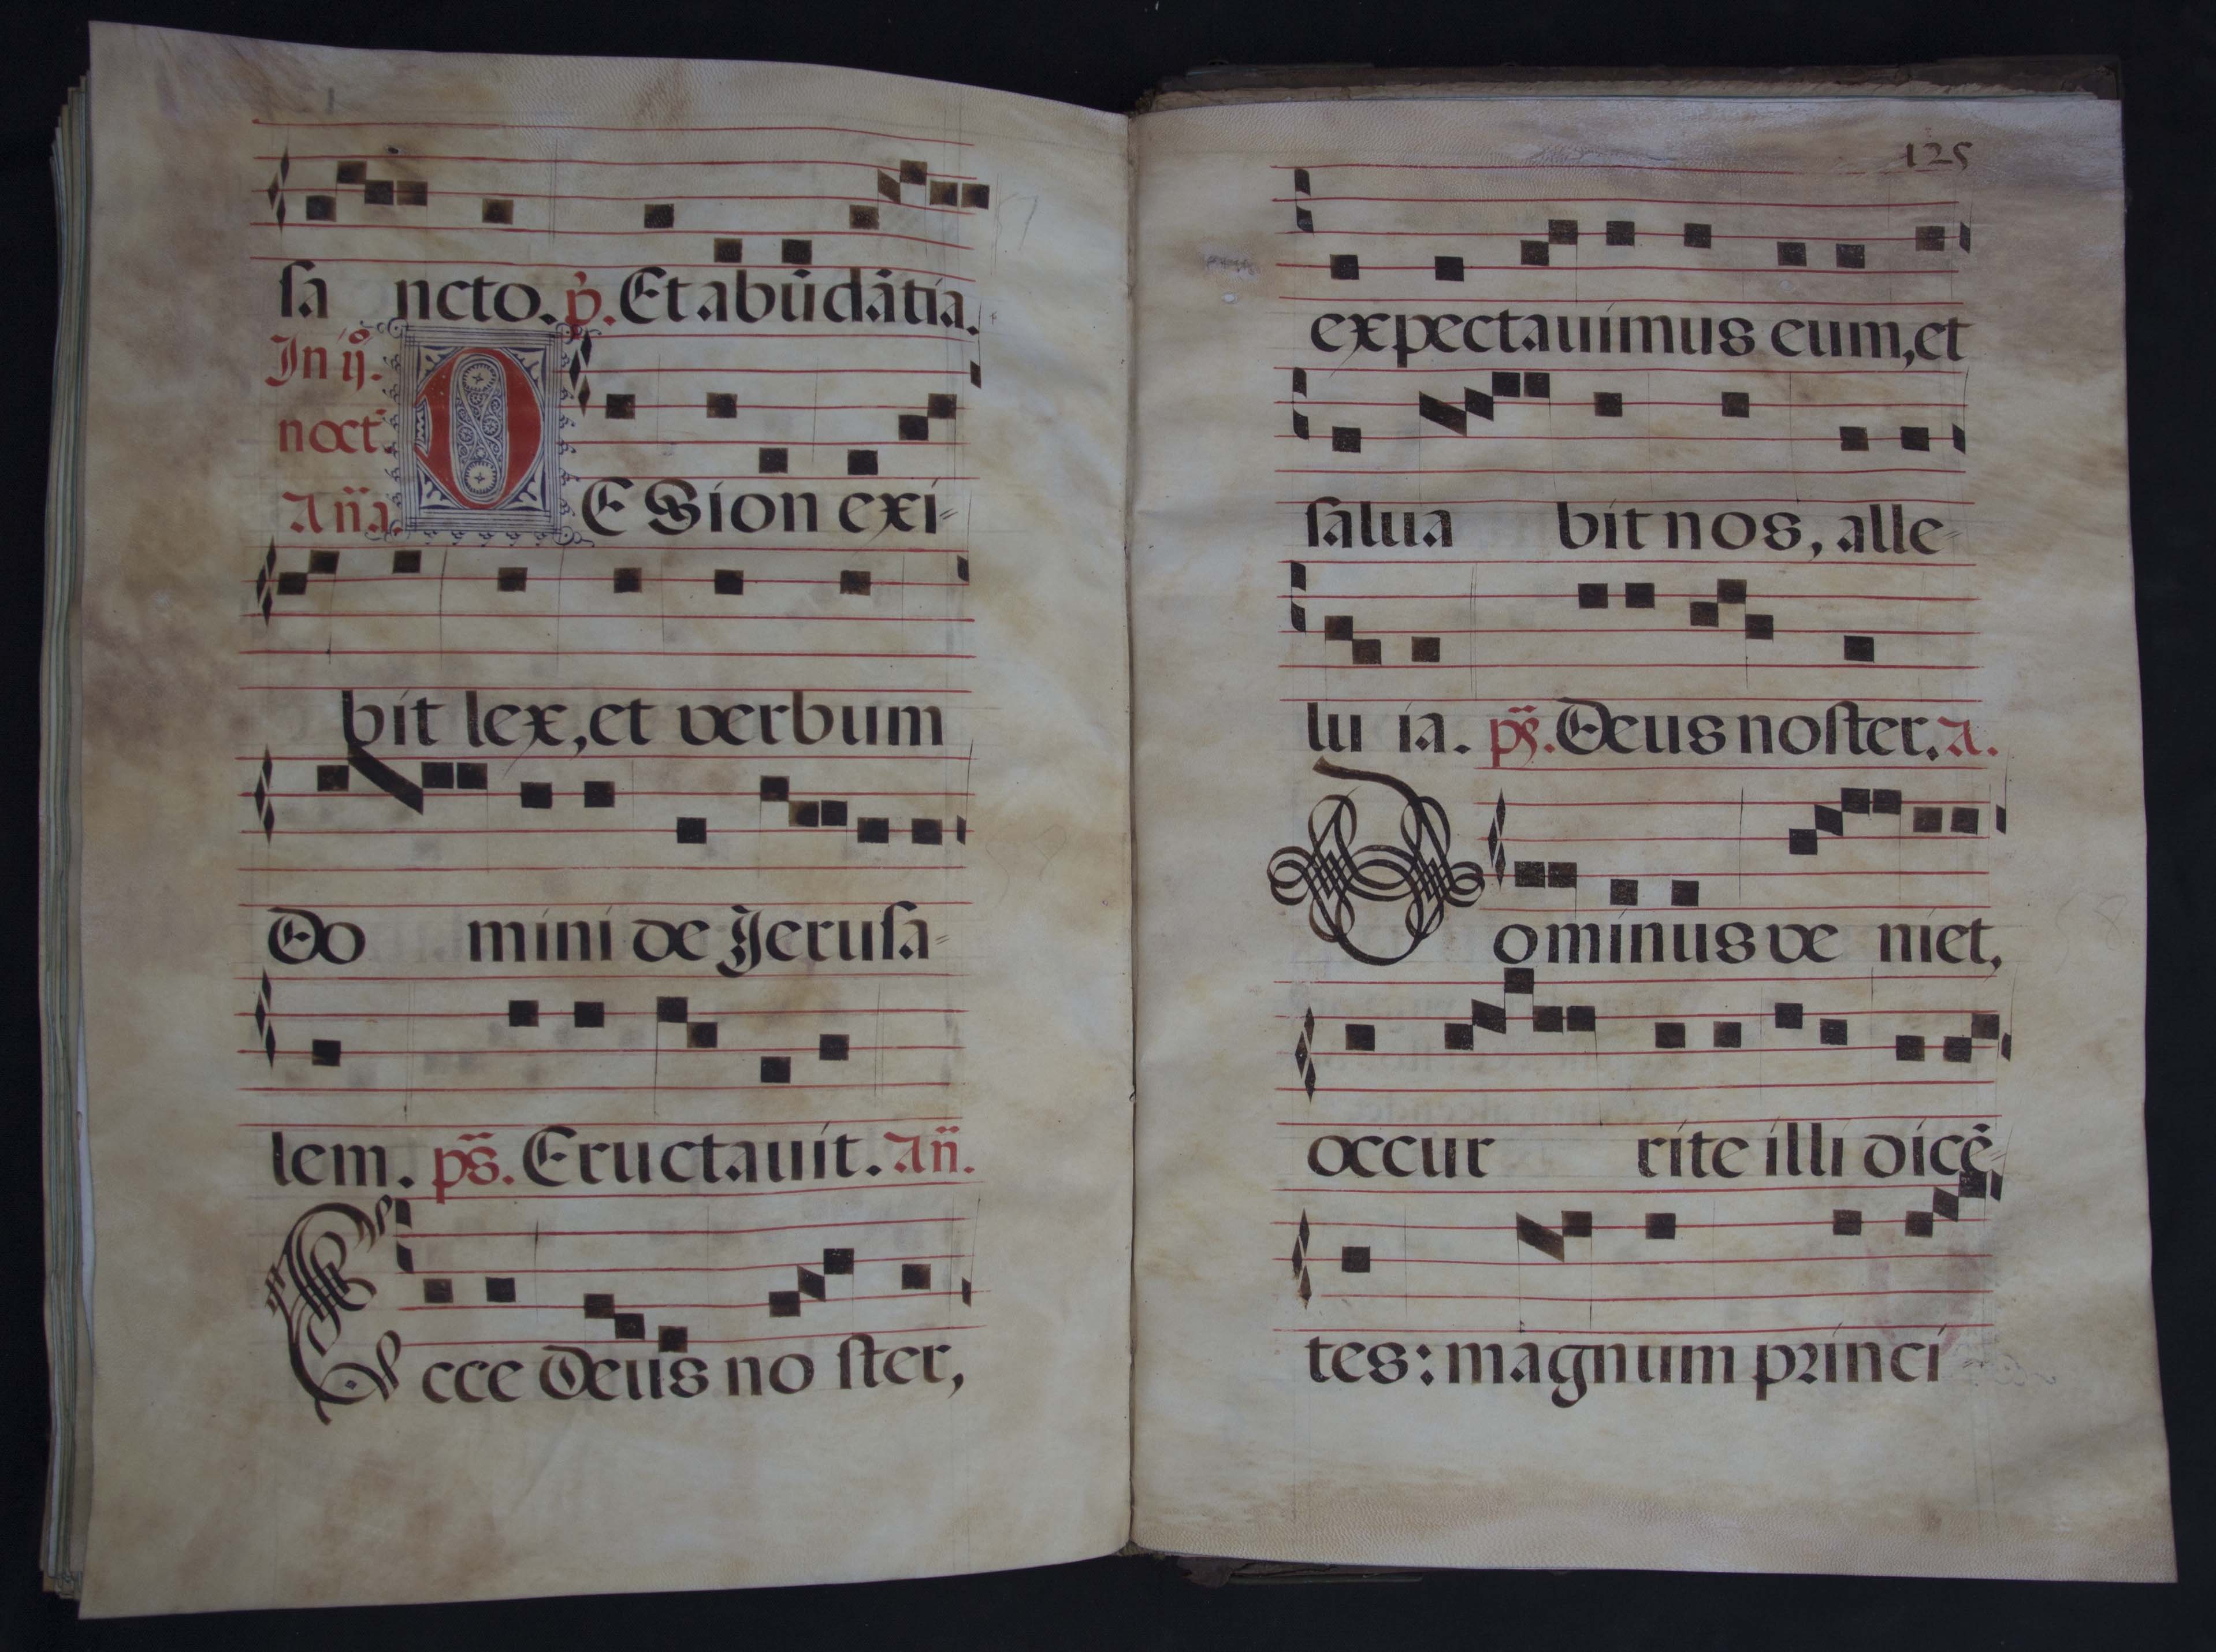 ſa ncto. p̃. Et abũdãtia.
In ij.º
noct.
Añ.a. DE Sion exi-
bit lex, et verbum
Do mini de Jeruſa-
lem. ps̃. Eructauit. Añ.
Ecce Deus no ſter,
125
expectauimus eum, et
ſalua bit nos, alle-
lu ia. ps̃. Deus noſter. A.
Dominus ve niet,
occur rite illi dicẽ-
tes: magnum princi